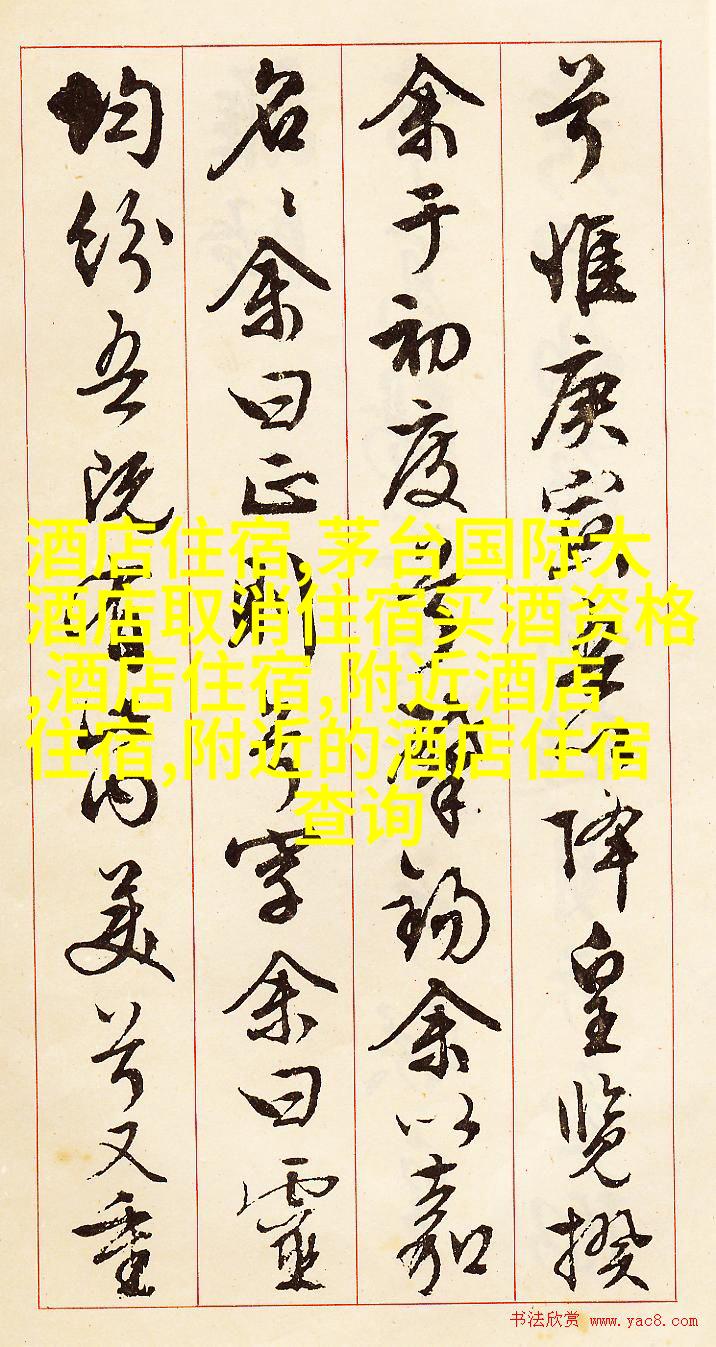 兮惟庚寅吾以降皇覽揆
余于初度兮肇錫余以嘉
名〻余曰正則兮字余曰靈
均紛吾既有此內美兮又重
酒店住宿,茅台国际大
酒店取消住宿买酒资格
,酒店住宿,附近酒店
住宿,附近的酒店住宿
查询
书法欣赏 www.yac8.com